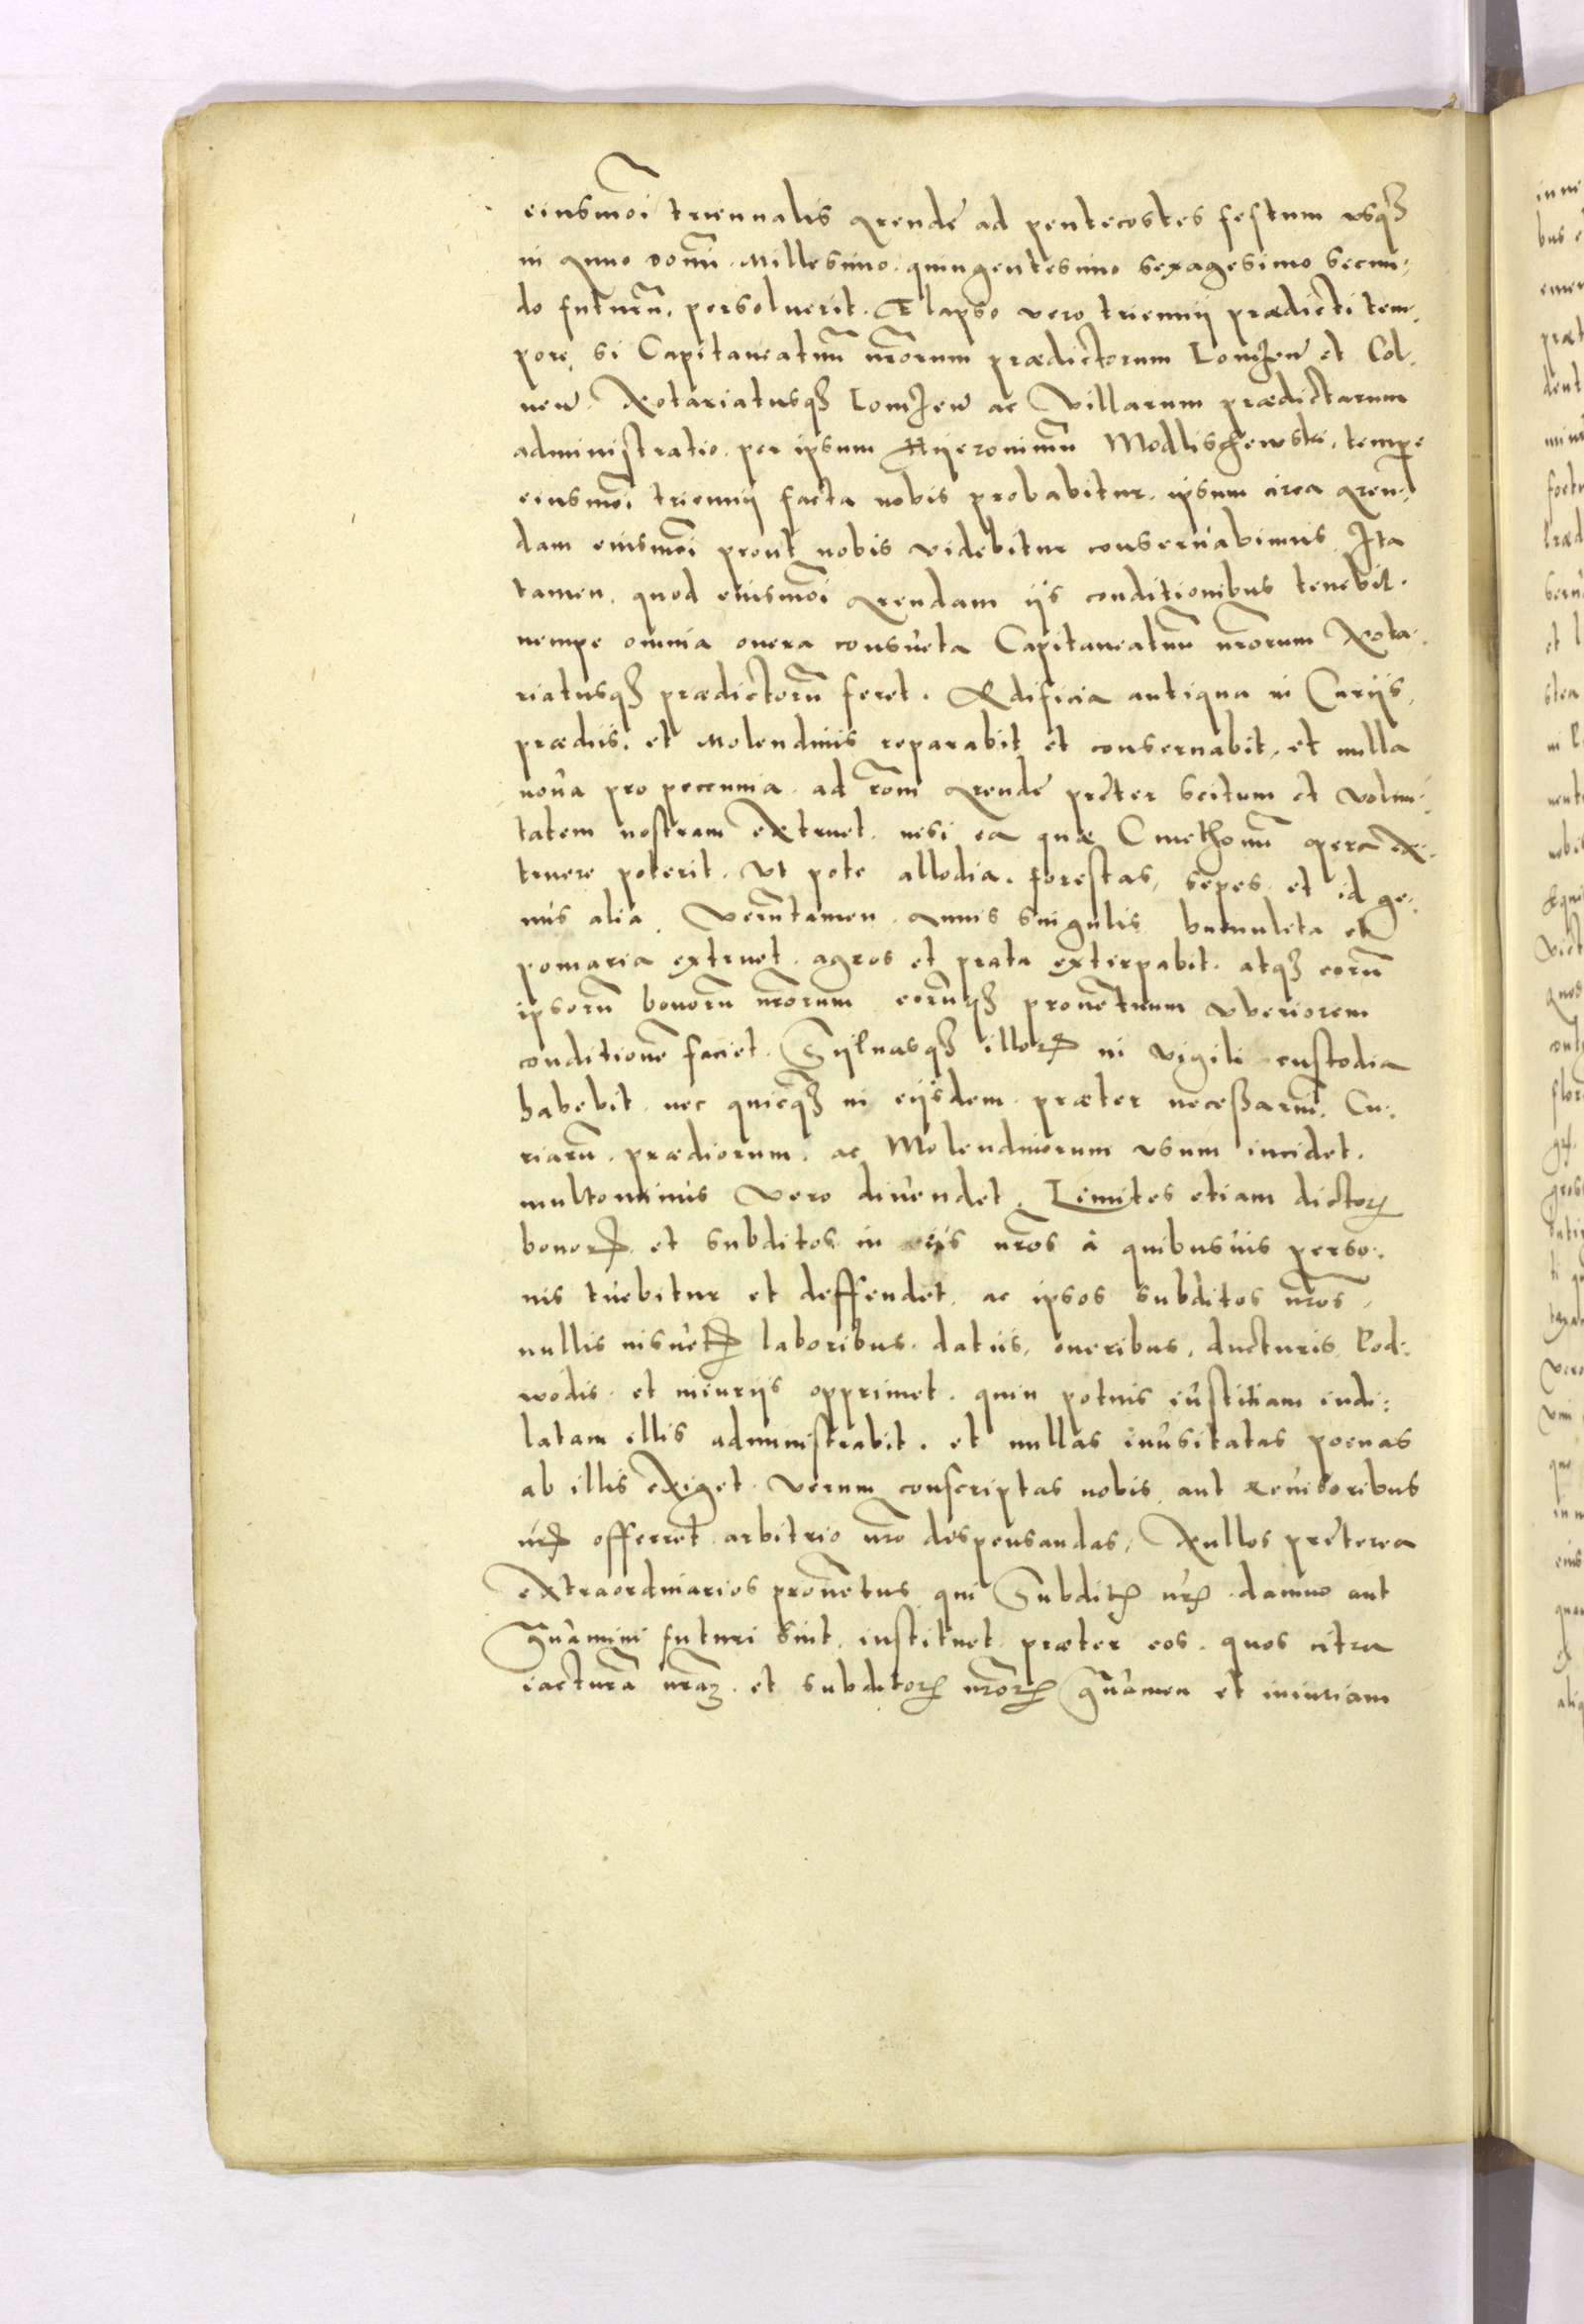 eiusmoi triennalis arendę ad pentecostes festum usq3
in anno domi. Millesimo. quingentesimo sexagesimo secun:
do futurũ, persoluerit. Elapso vero triennii prædicti tem:
pore, si Capitaneatuũ nrorum prædictorum Lomzeñ et Col:
neñ. Notariatusq3 Lomzeñ ac villarum prædictarum
administratio. per ipsum Hyeronimũ Modlischewski. tempe
eiusmoi triennii facta nobis probabitur. ipsum circa aren:
dam eiusmoi prout nobis videbitur conseruabimus. Ita
tamen. quod eiusmoi arendam iis conditionibus tenebit.
nempe omnia onera consueta Capitaneatuũ nrorum Nota:
riatusq3 prædictorũ feret. Ædificia antiqua in Curiis,
prædiis. et Molendinis reparabit et conseruabit, et nulla
noua pro pecunia. ad rõm arendę pręter scitum et volun:
tatem nostram extruet. nisi ea quæ Cmethonũ opera ex:
truere poterit. ut pote allodia. forestas, sepes et id ge:
nus alia. Verũtamen. annis singulis humuleta et
pomaria extruet. agros et prata extirpabit. atq3 eorũ
ipsorũ bonorũ nrorum eorũq3 prouẽtuum uberiorem
conditionẽ faciet. Syluasq3 illorꝝ in vigili custodia
habebit. nec quicq3 in eiisdem. præter necessariũ. Cu:
riarũ. prædiorum. ac Molendinorum usum incidet.
multominus vero diuendet. Limites etiam dictorꝝ
bonorꝝ et subditos in eiis nros à quibusuis perso:
nis tuebitur et deffendet. ac ipsos subditos nros,
nullis insuetꝭ laboribus. datiis, oneribus, ducturis, Pod:
wodis. et iniuriis opprimet. quin potuis iustitiam inde:
latam illis administrabit. et nullas inusitatas poenas
ab illis exiget. verum conscriptas nobis aut reuisoribus
nrꝭ offerret arbitrio nro dispensandas, Nullos pręterea
extraordinarios prouẽtus qui Subditꝭ nrꝭ. damno aut
grauamini futuri sint, instituet. præter eos. quos citra
iacturã nram. et subditorꝝ nrorꝝ grauamen et iniuriam